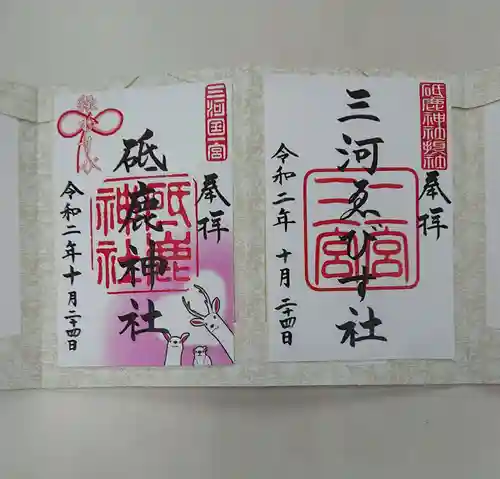 砥鹿神社摂社
奉拝
三河ゑびす社
三河一宮
令和二年 十月 二十四日
三河国一宮
奉拝
砥鹿神社
砥鹿神社
令和二年十月二十四日